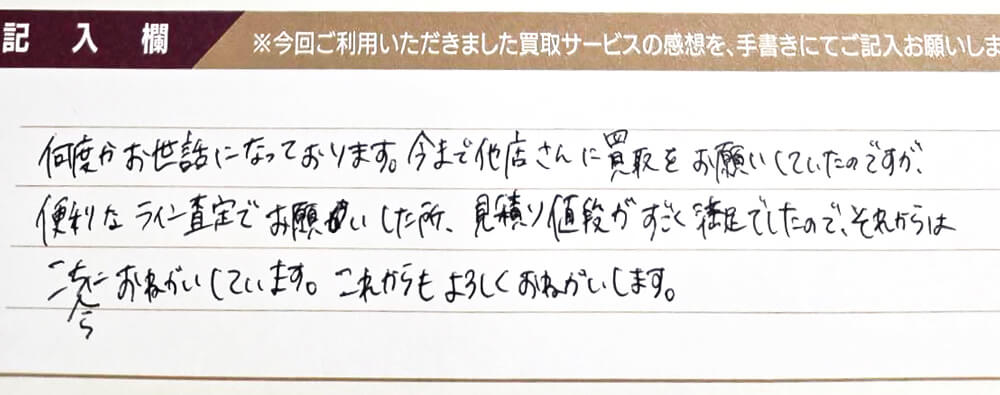 記入欄 ※今回ご利用いただきました買取サービスの感想を、手書きにてご記入お願いしま
何度かお世話になっております。今まで他店さんに買取をお願いしていたのですが、
便利なライン査定でお願いした所、見積り値段がすごく満足でしたので、それからは
こちらにおねがいしています。これからもよろしくおねがいします。